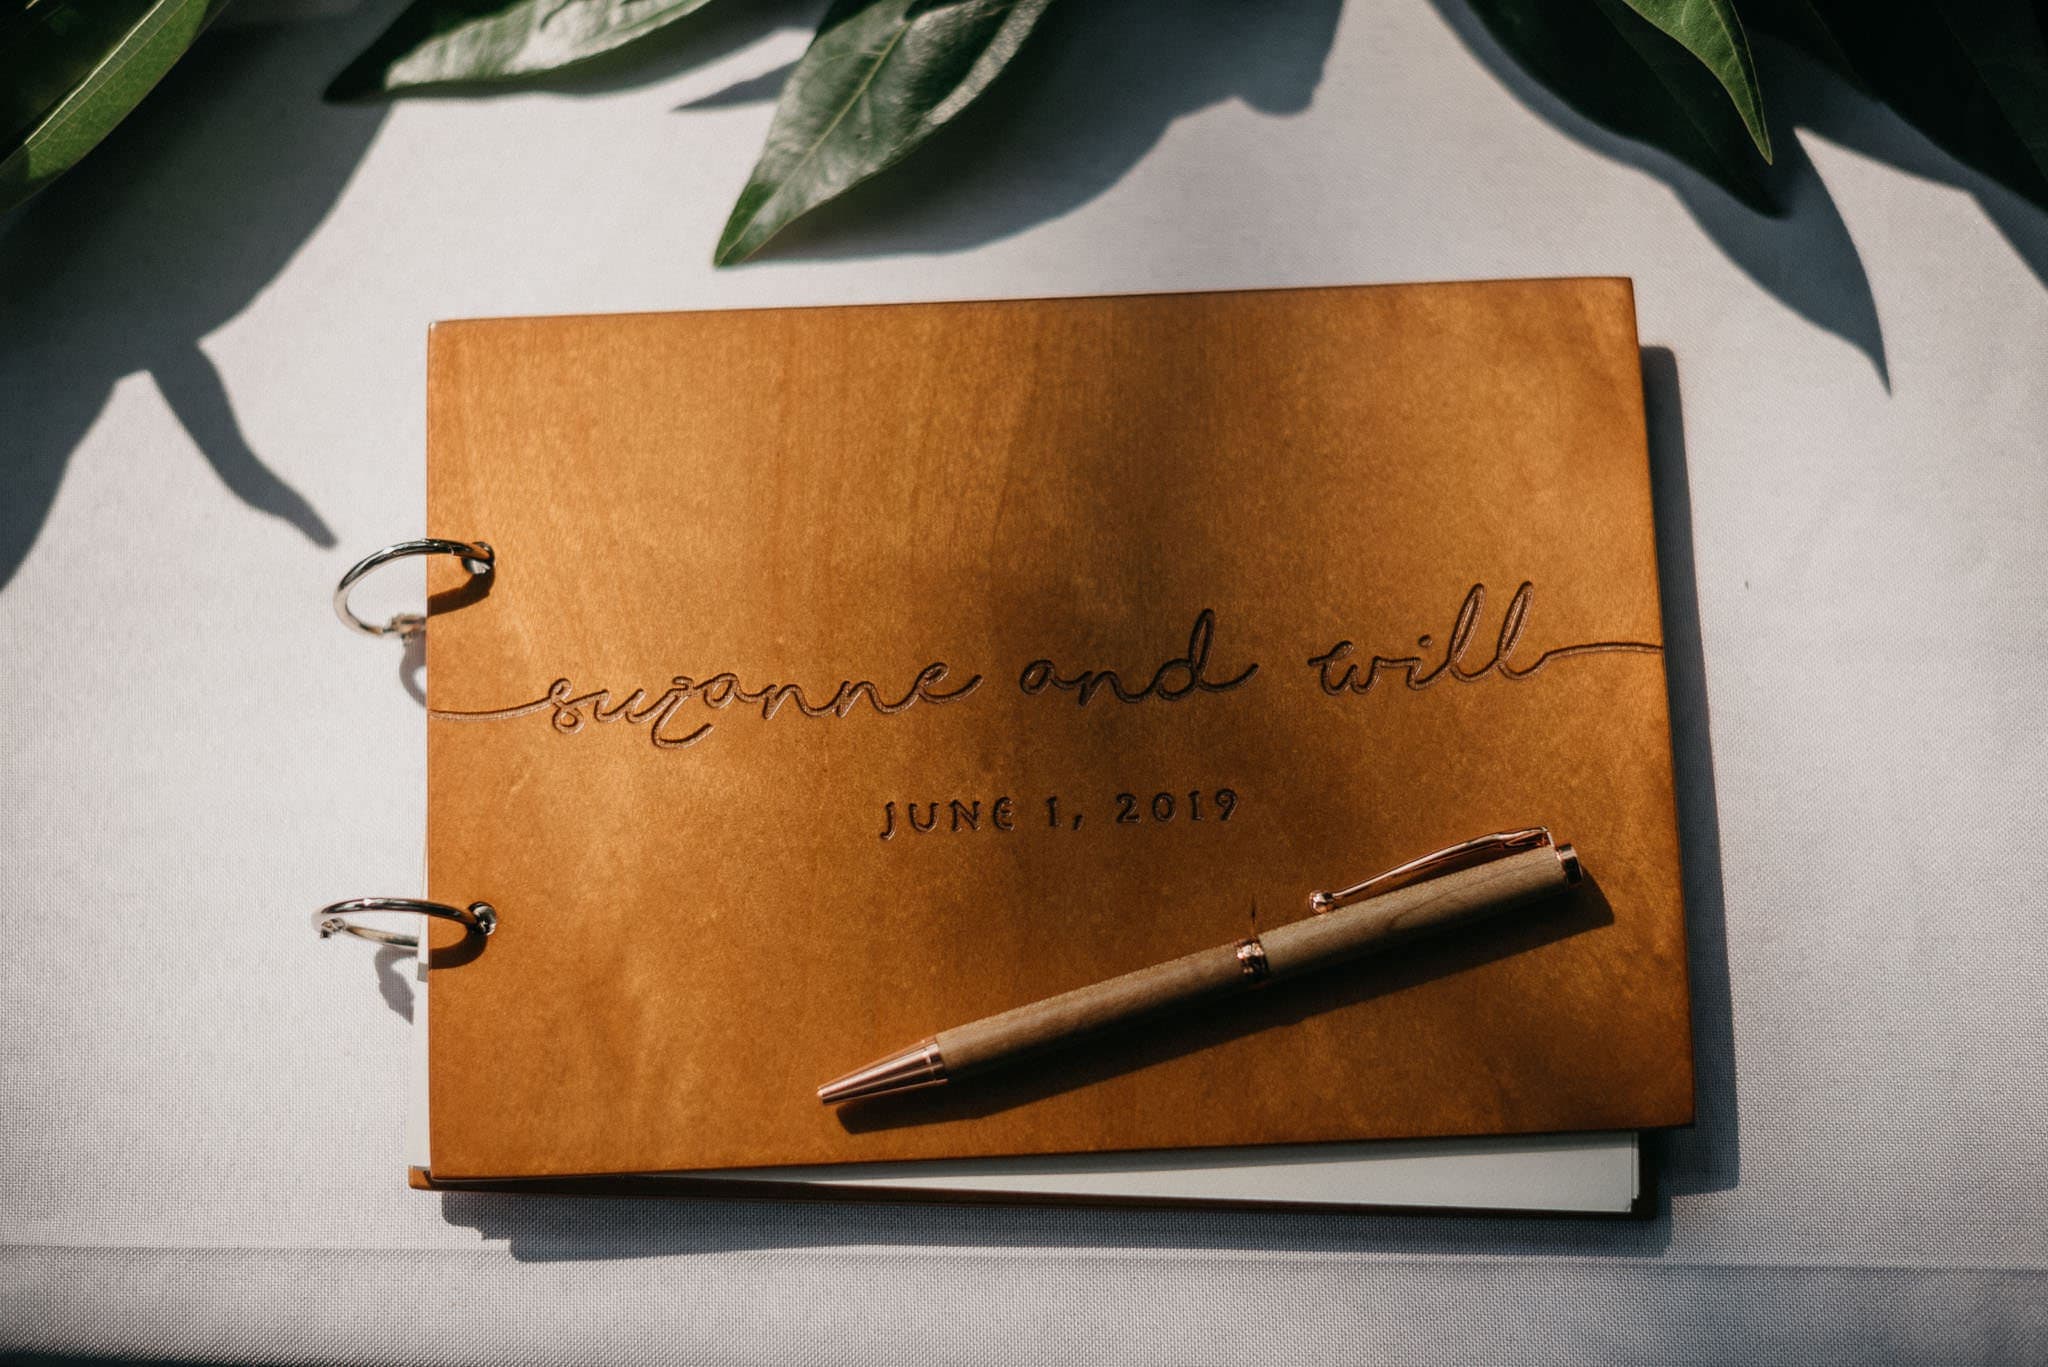 suzanne and will
JUNE 1, 2019